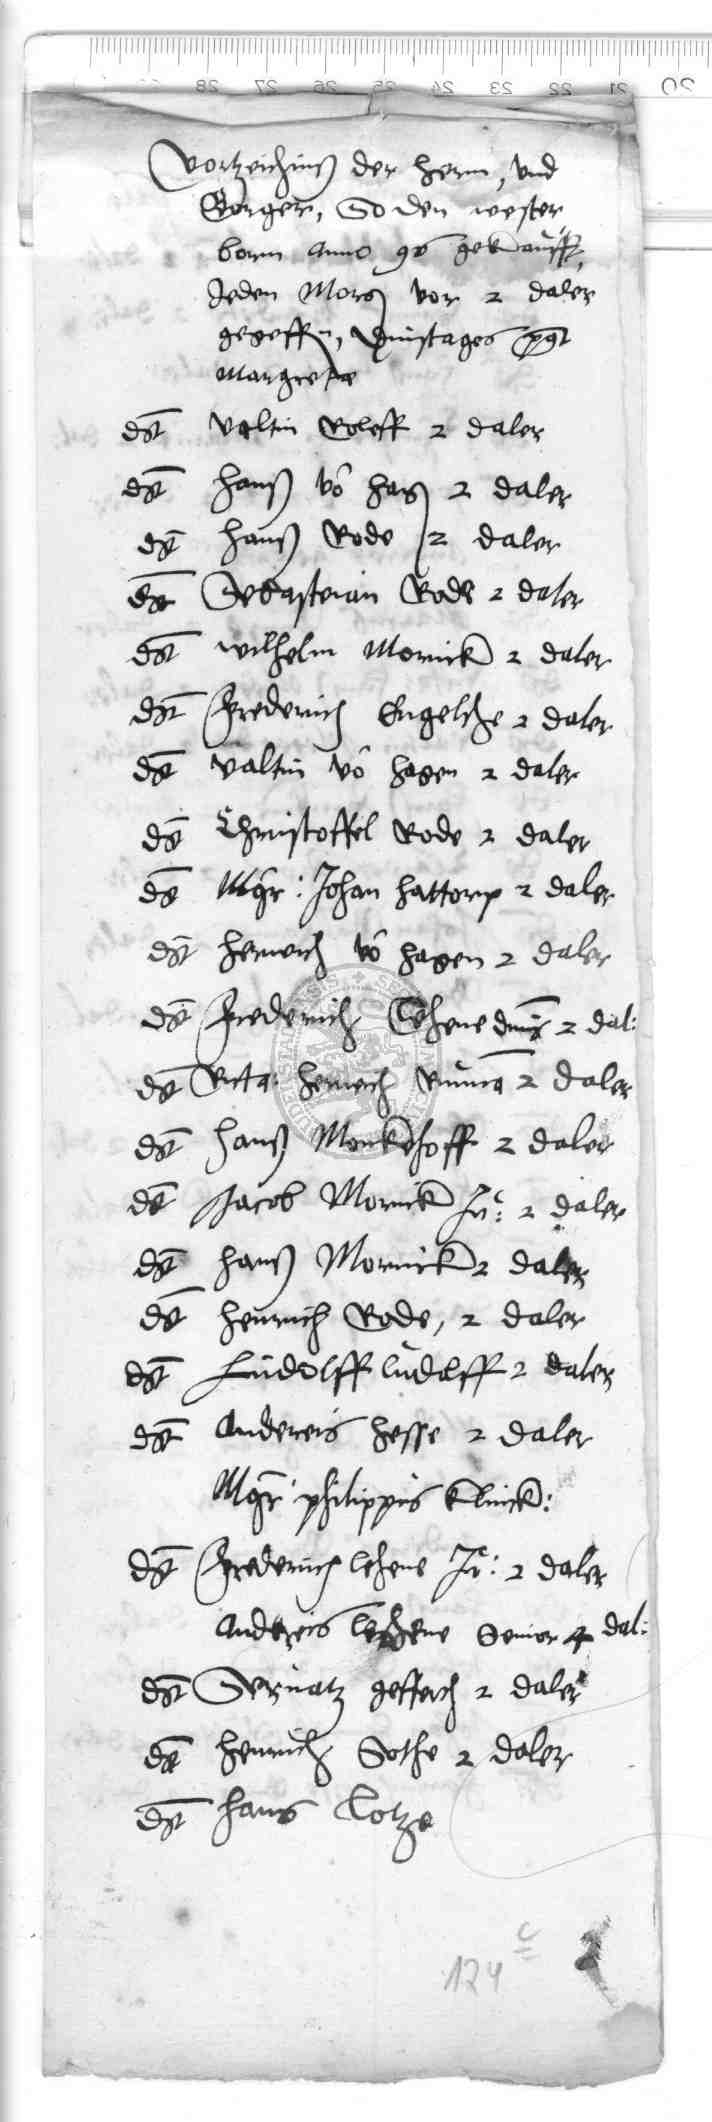 Vortzeichnis der herrn, und
Borger, So den wester
born Anno 96 gekaufft,
Jeden Morg vor 2 daler
gegeffen, Dinstages post
Margrete
dt Valtin Roleff 2 daler
dt Hanß vô Hag 2 daler
dt Hanß Rode 2 daler
dt Sebasteian Rode 2 daler
dt wilhelm Mornick 2 daler
dt Frederich Engelche 2 daler
dt Valtin vô Hagen 2 daler
dt Christoffel Rode 2 daler
dt Mgr: Johan Hattorp 2 daler
dt Henrich vô Hagen 2 daler
dt Frederich Lehene 2 dal:
dt Henrich 2 daler
dt Hanß Monkehoff 2 daler
dt Jacob Mornick Ju: 2 daler
dt Hanß Mornick 2 daler
dt Henrich Rode, 2 daler
dt Ludolff Ludolff 2 daler
dt Andereis Hesse 2 daler
Mgr philippus Klinck:
dt Frederich Lehene Ju: 2 daler
Andereis Lehene Senior 4 dal:
dt Servatz 2 daler
dt Henrich Sothe 2 daler
dt Hans Lotze
124 c
20 21 22 23 24 25 26 27 28